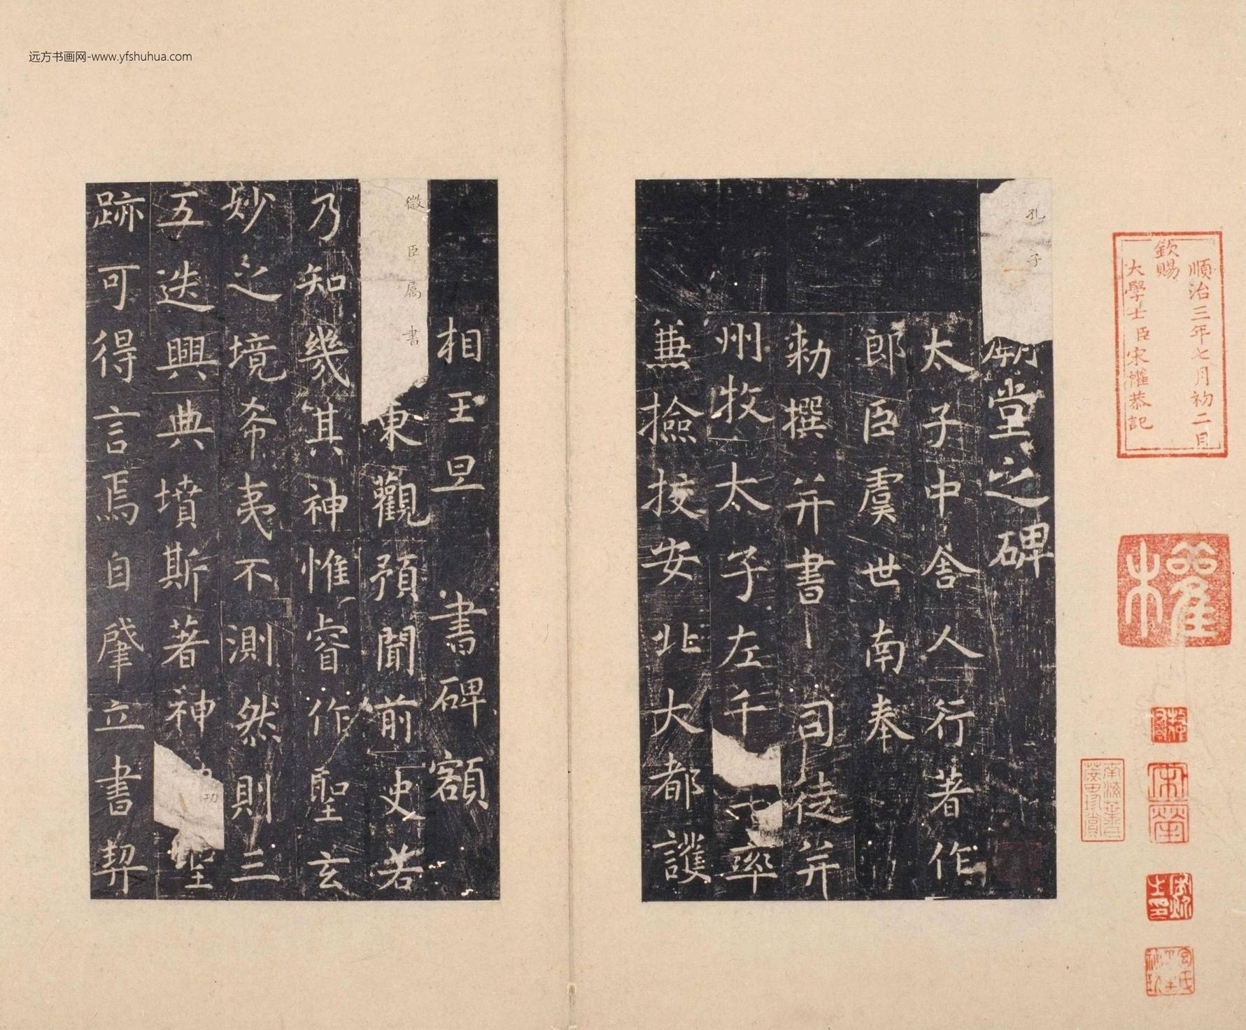 远方书画网-www.yfshuhua.com
順治三年七月初二日
欽賜
大學士臣宋權恭記
權
孔子
廟堂之碑
太子中舍人行著作
郎臣虞世南奉
勅撰并書 司徒并
州牧太子左千
率
兼撿挍安北大都護
相王旦 書碑額
微臣屬書
東觀預聞前史若
乃知幾其神惟睿作聖玄
妙之境希夷不測然則三
五迭興典墳斯著神
功聖
跡可得言焉自肇立書契